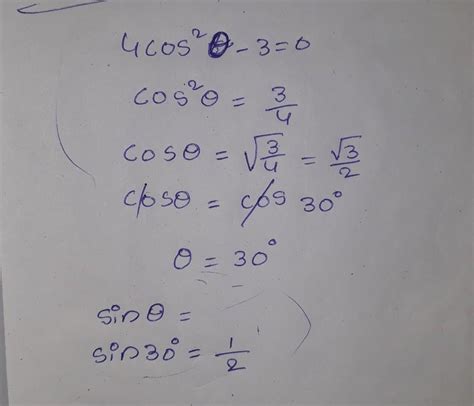 4cos²θ - 3 = 0
cos²θ = 3/4
cosθ = √(3/4) = √3/2
cosθ = cos 30°
θ = 30°
sinθ =
sin30° = 1/2